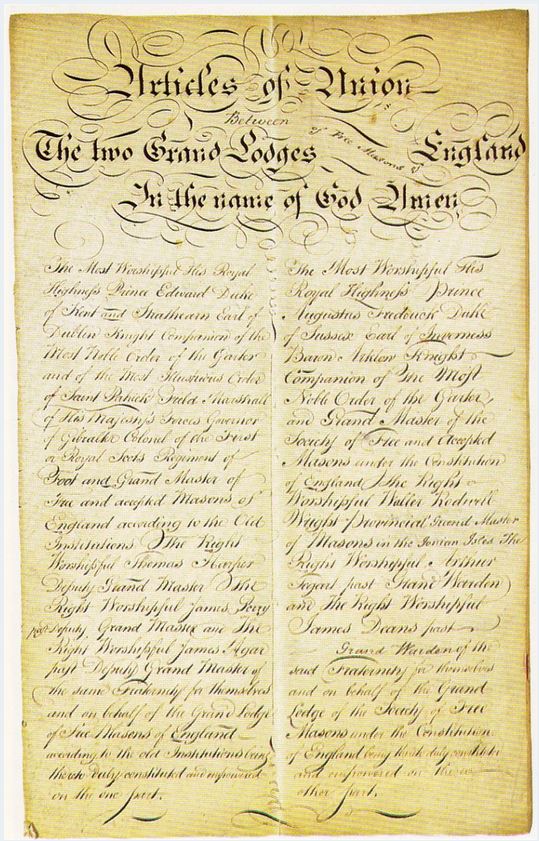 Articles of Union
Between
The two Grand Lodges of Free Masons of England
In the name of God Amen
The Most Worshipful His Royal
Highness Prince Edward Duke
of Kent and Strathearn Earl of
Dublin Knight Companion of the
Most Noble Order of the Garter
and of the Most Illustrious Order
of Saint Patrick Field Marshall
of His Majestys Forces Governor
of Gibraltar Colonel of the First
or Royal Scots Regiment of
Foot and Grand Master of
Free and accepted Masons of
England according to the Old
Institutions The Right
Worshipful Thomas Harper
Deputy Grand Master The
Right Worshipful James Perry
past Deputy Grand Master and The
Right Worshipful James Agar
past Deputy Grand Master of
the same Fraternity for themselves
and on behalf of the Grand Lodge
of Free Masons of England
according to the old Institutions being
thereto duly constituted and empowered
on the one part.
The Most Worshipful His
Royal Highness Prince
Augustus Frederick Duke
of Sussex Earl of Inverness
Baron Arklow Knight
Companion of The Most
Noble Order of the Garter
and Grand Master of the
Society of Free and Accepted
Masons under the Constitution
of England The Right
Worshipful Waller Rodwell
Wright Provincial Grand Master
of Masons in the Ionian Isles The
Right Worshipful Arthur
past Grand Warden
and The Right Worshipful
James Deans past
Grand Warden of the
said Fraternity for themselves
and on behalf of the Grand
Lodge of the Society of Free
Masons under the Constitution
of England being thereto duly constituted
and empowered on the
other part.